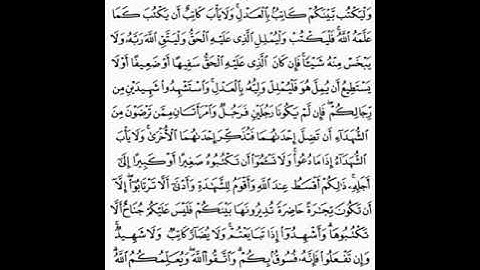 وَلْيَكْتُب بَّيْنَكُمْ كَاتِبٌۢ بِالْعَدْلِ ۚ وَلَا يَأْبَ كَاتِبٌ أَن يَكْتُبَ كَمَا
عَلَّمَهُ اللَّهُ ۚ فَلْيَكْتُبْ وَلْيُمْلِلِ الَّذِي عَلَيْهِ الْحَقُّ وَلْيَتَّقِ اللَّهَ رَبَّهُ وَلَا
يَبْخَسْ مِنْهُ شَيْـًٔا ۚ فَإِن كَانَ الَّذِي عَلَيْهِ الْحَقُّ سَفِيهًا أَوْ ضَعِيفًا أَوْ لَا
يَسْتَطِيعُ أَن يُمِلَّ هُوَ فَلْيُمْلِلْ وَلِيُّهُ بِالْعَدْلِ ۚ وَاسْتَشْهِدُوا شَهِيدَيْنِ مِن
رِّجَالِكُمْ ۖ فَإِن لَّمْ يَكُونَا رَجُلَيْنِ فَرَجُلٌ وَامْرَأَتَانِ مِمَّن تَرْضَوْنَ مِنَ
الشُّهَدَاءِ أَن تَضِلَّ إِحْدَىٰهُمَا فَتُذَكِّرَ إِحْدَىٰهُمَا الْأُخْرَىٰ ۚ وَلَا يَأْبَ
الشُّهَدَاءُ إِذَا مَا دُعُوا ۚ وَلَا تَسْـَٔمُوا أَن تَكْتُبُوهُ صَغِيرًا أَوْ كَبِيرًا إِلَىٰ
أَجَلِهِ ۚ ذَٰلِكُمْ أَقْسَطُ عِندَ اللَّهِ وَأَقْوَمُ لِلشَّهَٰدَةِ وَأَدْنَىٰ أَلَّا تَرْتَابُوا ۖ إِلَّا
أَن تَكُونَ تِجَٰرَةً حَاضِرَةً تُدِيرُونَهَا بَيْنَكُمْ فَلَيْسَ عَلَيْكُمْ جُنَاحٌ أَلَّا
تَكْتُبُوهَا ۗ وَأَشْهِدُوا إِذَا تَبَايَعْتُمْ ۚ وَلَا يُضَارَّ كَاتِبٌ وَلَا شَهِيدٌ ۚ
وَإِن تَفْعَلُوا فَإِنَّهُ فُسُوقٌۢ بِكُمْ ۗ وَاتَّقُوا اللَّهَ ۖ وَيُعَلِّمُكُمُ اللَّهُ ۗ